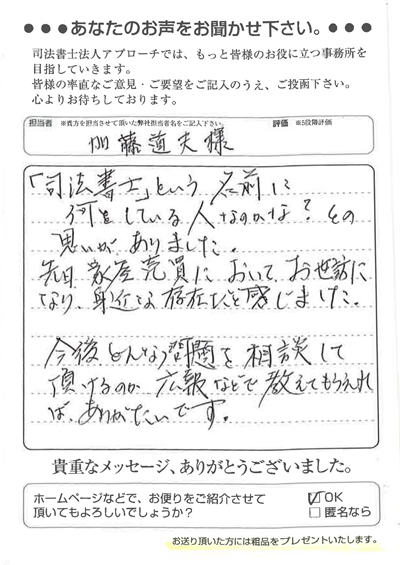 ●●●あなたのお声をお聞かせ下さい。●●●
司法書士法人アプローチでは、もっと皆様のお役に立つ事務所を
目指していきます。
皆様の率直なご意見・ご要望をご記入のうえ、ご投函下さい。
心よりお待ちしております。
担当者 ※貴方を担当させて頂いた弊社担当者名をご記入下さい。 評価 ※5段階評価
加藤道夫様
「司法書士」という名前に
何をしている人なのかな?その
思いがありました。
先日家屋売買において、お世話に
なり、身近な存在だと感じました。
今後どんな問題を相談して
頂けるのか広報などで教えてもらえれ
ば、ありがたいです。
貴重なメッセージ、ありがとうございました。
ホームページなどで、お便りをご紹介させて
頂いてもよろしいでしょうか?
☑OK
□匿名なら
お送り頂いた方には粗品をプレゼントいたします。